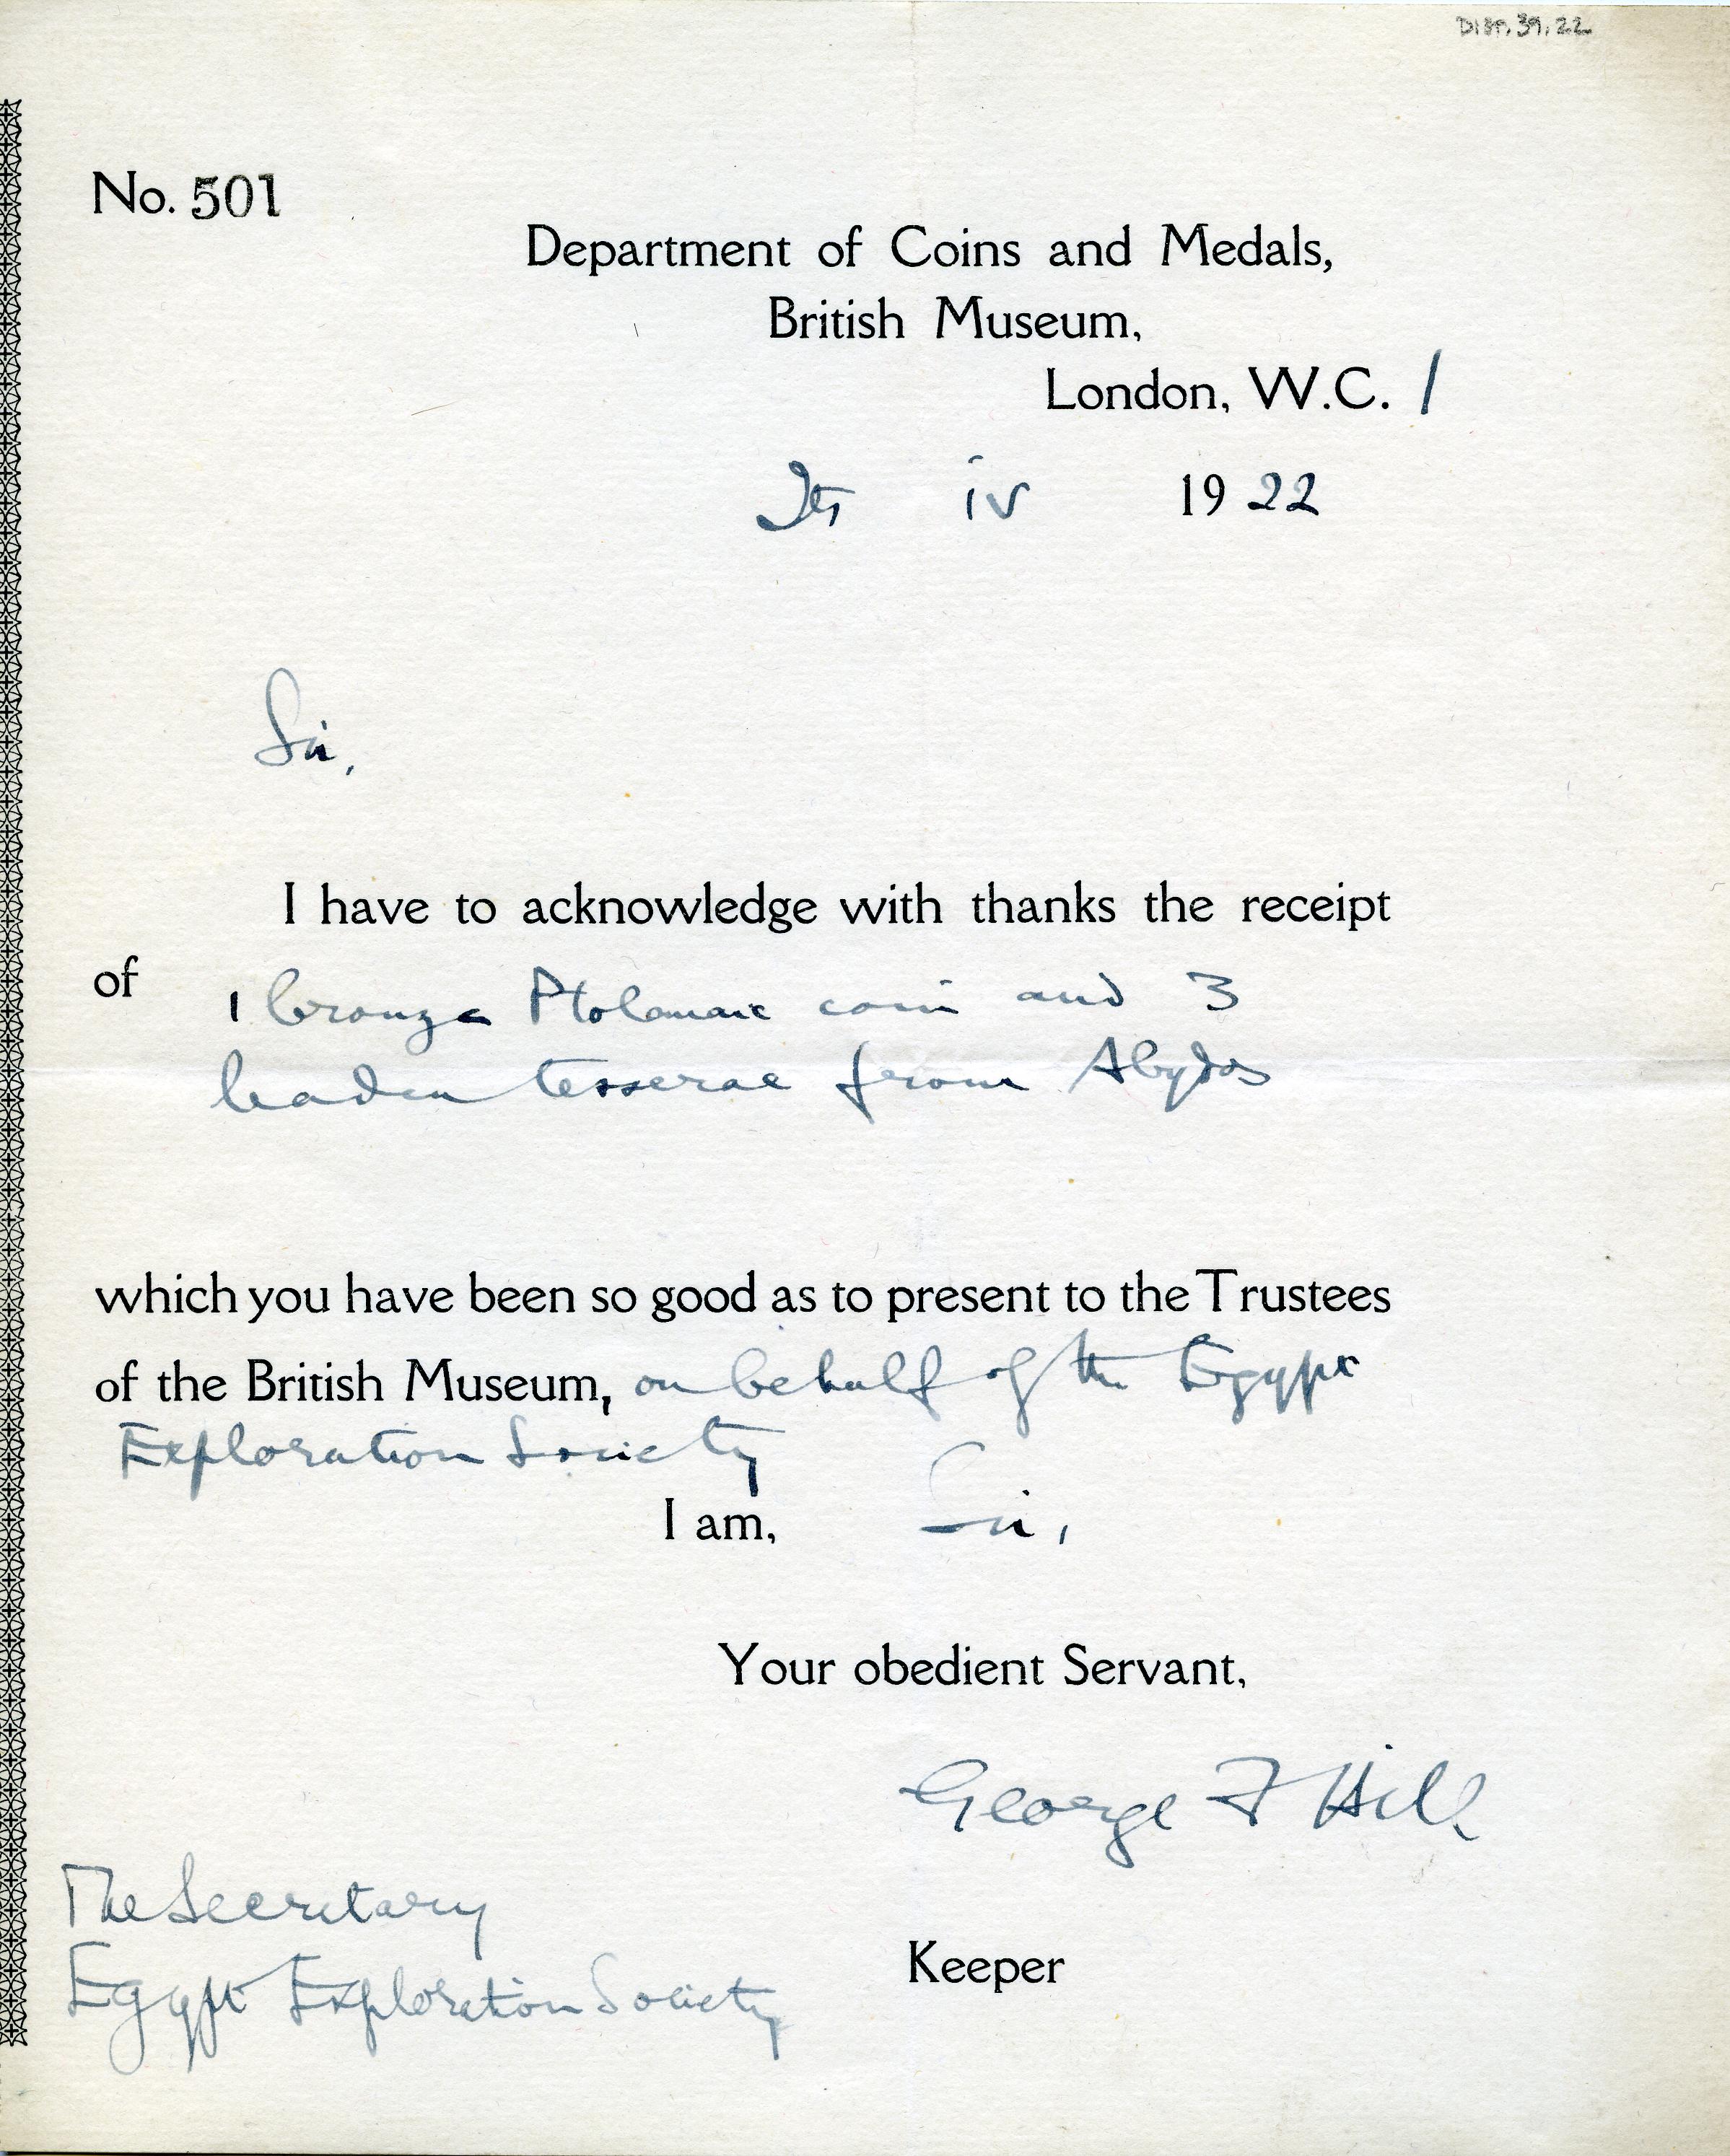 DIST.39.22
No. 501
Department of Coins and Medals,
British Museum,
London, W.C. 1
iv 1922
Sir,
I have to acknowledge with thanks the receipt
of 1 bronze Ptolemaic coin and 3
leaden tesserae from Abydos
which you have been so good as to present to the Trustees
of the British Museum, on behalf of the Egypt
Exploration Society
I am, Sir,
Your obedient Servant,
George F Hill
The Secretary
Keeper
Egypt Exploration Society